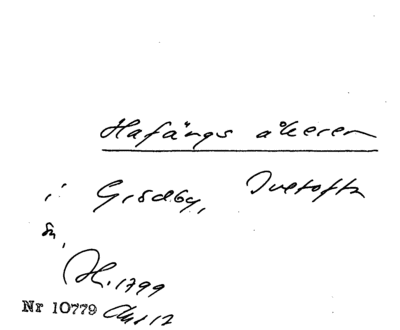 Hafängs åkeren
i Grödby, Ivetofta
sn,
Sk. 1799
Nr 10779 Akt 12